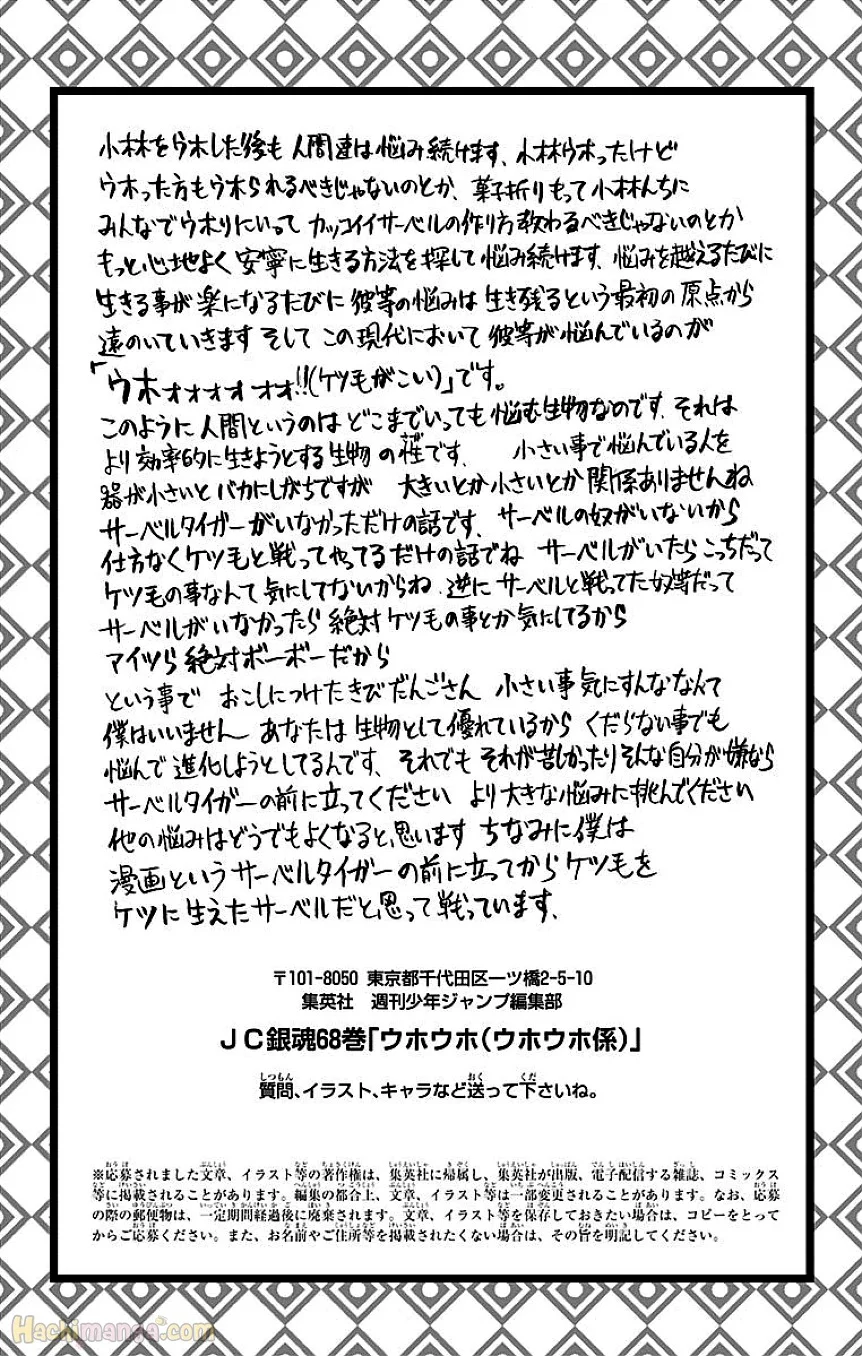 小林をウホした後も人間達は悩み続けます、小林ウホったけど
ウホった方もウホられるべきじゃないのとか、菓子折りもって小林んちに
みんなでウホりにいって カッコイイサーベルの作り方教わるべきじゃないのとか
もっと心地よく安寧に生きる方法を探して悩み続けます、悩みを越えるたびに
生きる事が楽になるたびに彼等の悩みは生き残るという最初の原点から
遠のいていきます そして この現代において 彼等が悩んでいるのが
「ウホォォォォ ォォ!!(ケツ毛がこい)」です。
このように人間というのは どこまでいっても悩む生物なのです、それは
より効率的に生きようとする生物の性です、 小さい事で悩んでいる人を
器が小さいとバカにしがちですが 大きいとか小さいとか関係ありませんね
サーベルタイガーがいなかっただけの話です、サーベルの奴がいないから
仕方なくケツ毛と戦ってやってるだけの話でね サーベルがいたらこっちだって
ケツ毛の事なんて気にしてないからね、逆にサーベルと戦ってた奴等だって
サーベルがいなかったら絶対ケツ毛の事とか気にしてるから
アイツら絶対ボーボーだから
という事で おこしにつけたきびだんごさん 小さい事気にすんななんて
僕はいいません あなたは生物として優れているから くだらない事でも
悩んで進化しようとしてるんです、それでも それが苦しかったりそんな自分が嫌なら
サーベルタイガーの前に立ってください より大きな悩みに挑んでください
他の悩みはどうでもよくなると思います ちなみに僕は
漫画というサーベルタイガーの前に立ってからケツ毛を
ケツに生えたサーベルだと思って戦っています、
〒101-8050 東京都千代田区一ツ橋2-5-10
集英社 週刊少年ジャンプ編集部
JC銀魂68巻「ウホウホ(ウホウホ係)」
質問、イラスト、キャラなど送って下さいね。
※応募されました文章、イラスト等の著作権は、集英社に帰属し、集英社が出版、電子配信する雑誌、コミックス
等に掲載されることがあります。編集の都合上、文章、イラスト等は一部変更されることがあります。なお、応募
の際の郵便物は、一定期間経過後に廃棄されます。文章、イラスト等を保存しておきたい場合は、コピーをとって
からご応募ください。また、お名前やご住所等を掲載されたくない場合は、その旨を明記してください。
Hachimanga.com